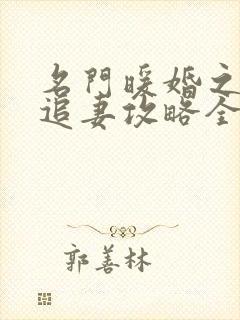 名門暖婚之
追妻攻略全
郭善林